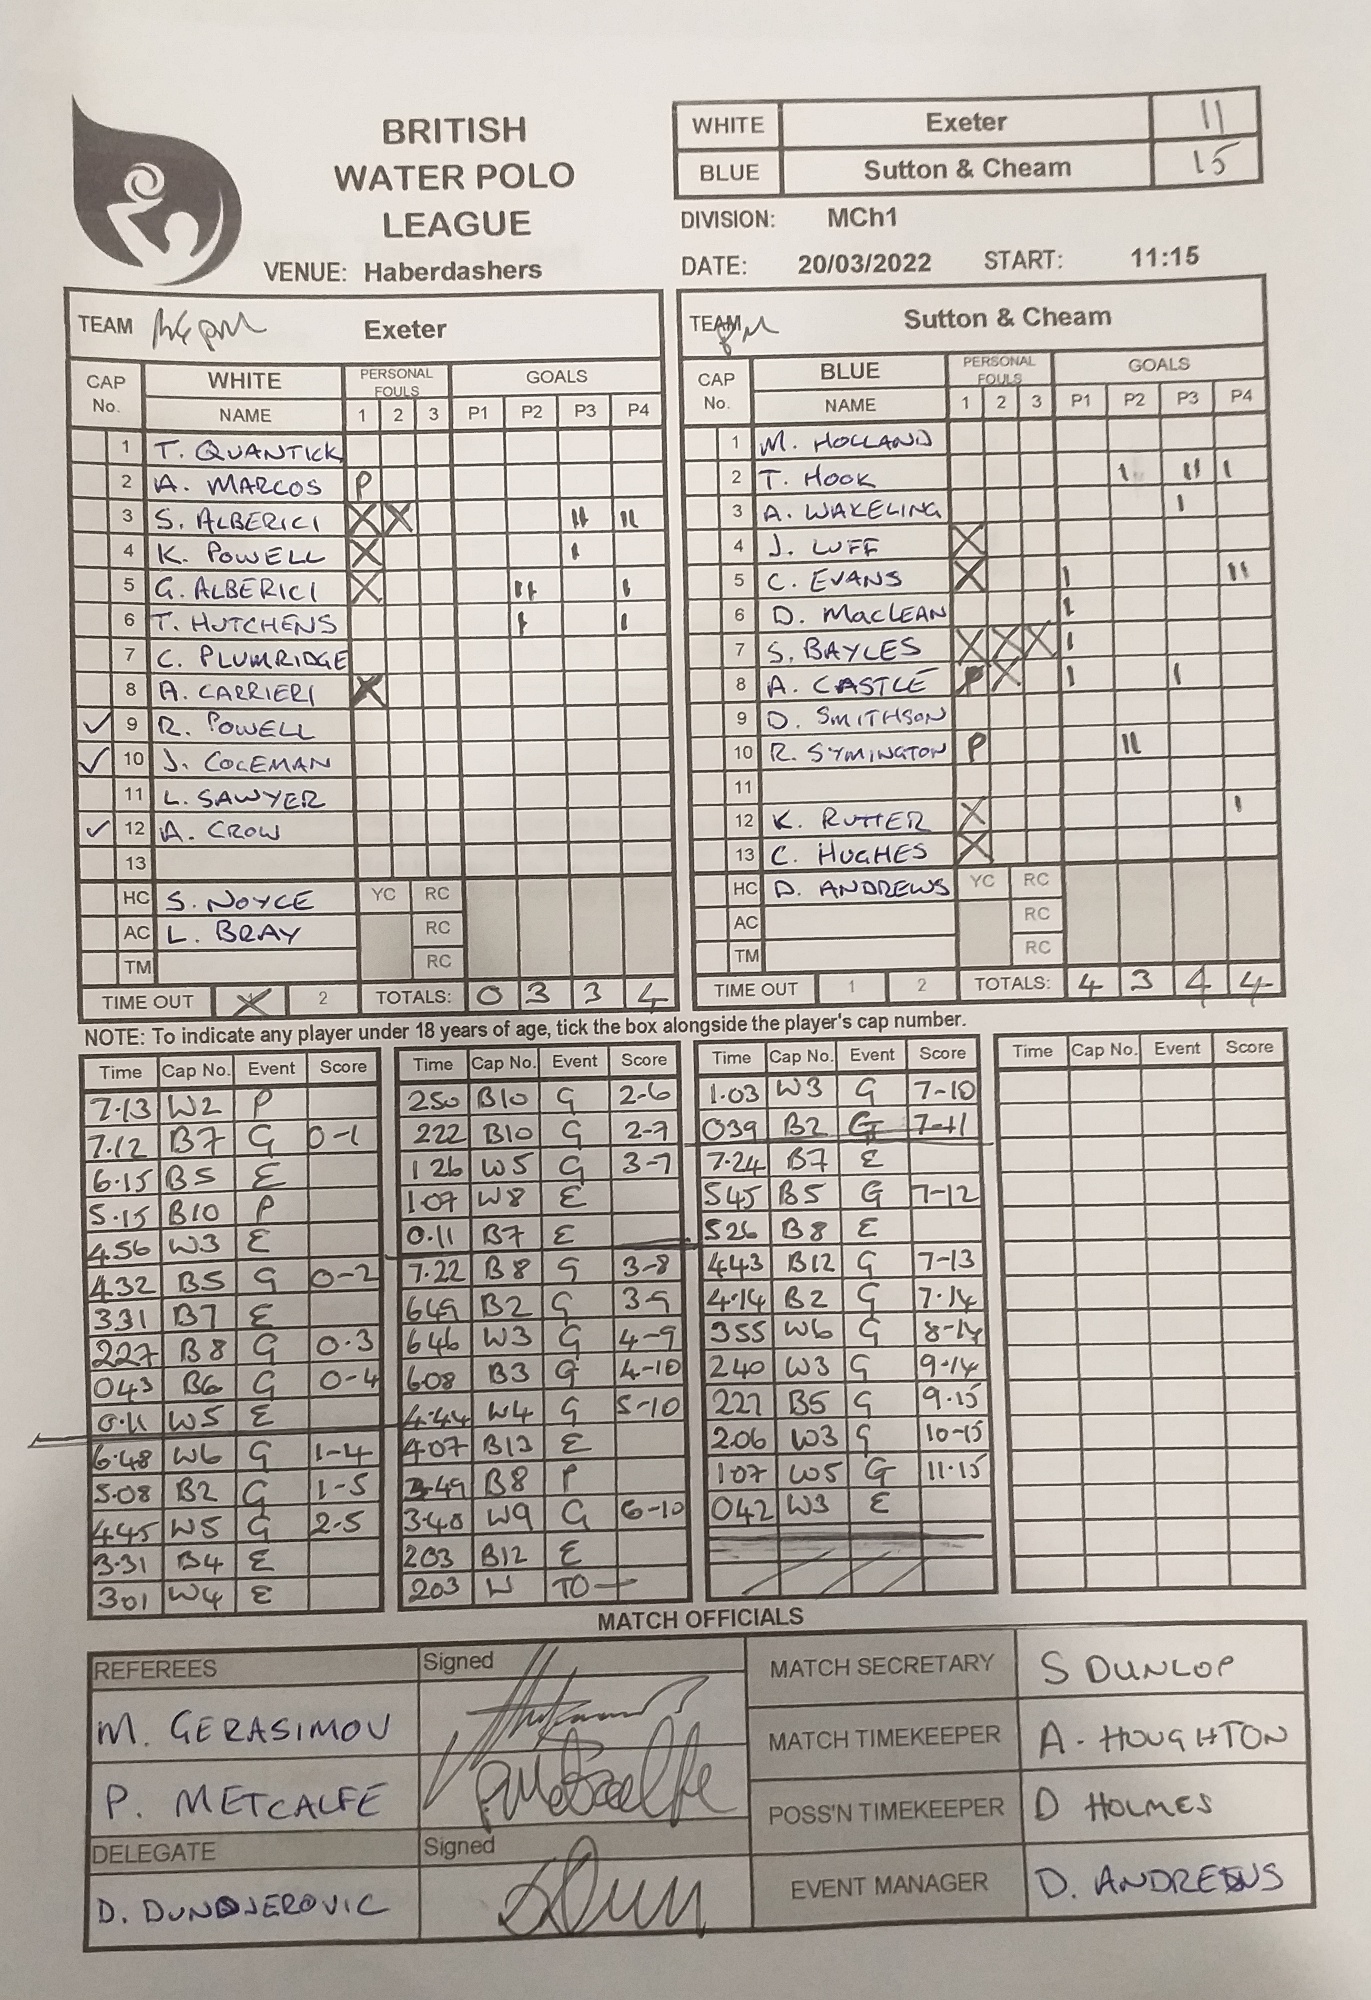 BRITISH
WATER POLO
LEAGUE
VENUE: Haberdashers
WHITE Exeter 11
BLUE Sutton & Cheam 15
DIVISION: MCh1
DATE: 20/03/2022 START: 11:15
TEAM Exeter
CAP No. WHITE PERSONAL FOULS GOALS
NAME 1 2 3 P1 P2 P3 P4
1 T. QUANTICK
2 A. MARCOS P
3 S. ALBERICI X X II II
4 K. POWELL X I
5 G. ALBERICI X II I
6 T. HUTCHENS I I
7 C. PLUMRIDGE
8 A. CARRIERI X
✓ 9 R. POWELL
✓ 10 J. COLEMAN
11 L. SAWYER
✓ 12 A. CROW
13
HC S. NOYCE YC RC
AC L. BRAY RC
TM RC
TIME OUT X 2 TOTALS: 0 3 3 4
TEAM Sutton & Cheam
CAP No. BLUE PERSONAL FOULS GOALS
NAME 1 2 3 P1 P2 P3 P4
1 M. HOLLAND
2 T. HOOK I II I
3 A. WAKELING I
4 J. LUFF X
5 C. EVANS X I II
6 D. MACLEAN I
7 S. BAYLES X X X I
8 A. CASTLE P X I I
9 D. SMITHSON
10 R. SYMINGTON P II
11
12 K. RUTTER X I
13 C. HUGHES X
HC D. ANDREWS YC RC
AC RC
TM RC
TIME OUT 1 2 TOTALS: 4 3 4 4
NOTE: To indicate any player under 18 years of age, tick the box alongside the player's cap number.
Time Cap No. Event Score
7.13 W2 P
7.12 B7 G 0-1
6.15 B5 E
5.15 B10 P
4.56 W3 E
4.32 B5 G 0-2
331 B7 E
227 B8 G 0.3
043 B6 G 0-4
0.11 W5 E
6.48 W6 G 1-4
5.08 B2 G 1-5
4.45 W5 G 2-5
3.31 B4 E
301 W4 E
Time Cap No. Event Score
250 B10 G 2-6
222 B10 G 2-7
126 W5 G 3-7
1.07 W8 E
0.11 B7 E
7.22 B8 G 3-8
649 B2 G 3-9
646 W3 G 4-9
608 B3 G 4-10
4.44 W4 G 5-10
407 B13 E
3.49 B8 P
3.48 W9 G 6-10
203 B12 E
203 W TO
Time Cap No. Event Score
1.03 W3 G 7-10
039 B2 G 7-11
7.24 B7 E
545 B5 G 7-12
526 B8 E
443 B12 G 7-13
4.14 B2 G 7.14
355 W6 G 8-14
240 W3 G 9-14
227 B5 G 9.15
2.06 W3 G 10-15
107 W5 G 11.15
042 W3 E
Time Cap No. Event Score
MATCH OFFICIALS
REFEREES Signed
M. GERASIMOV
P. METCALFE P. Metcalfe
DELEGATE Signed
D. DUNDJEROVIC
MATCH SECRETARY S DUNLOP
MATCH TIMEKEEPER A. HOUGHTON
POSS'N TIMEKEEPER D HOLMES
EVENT MANAGER D. ANDREWS